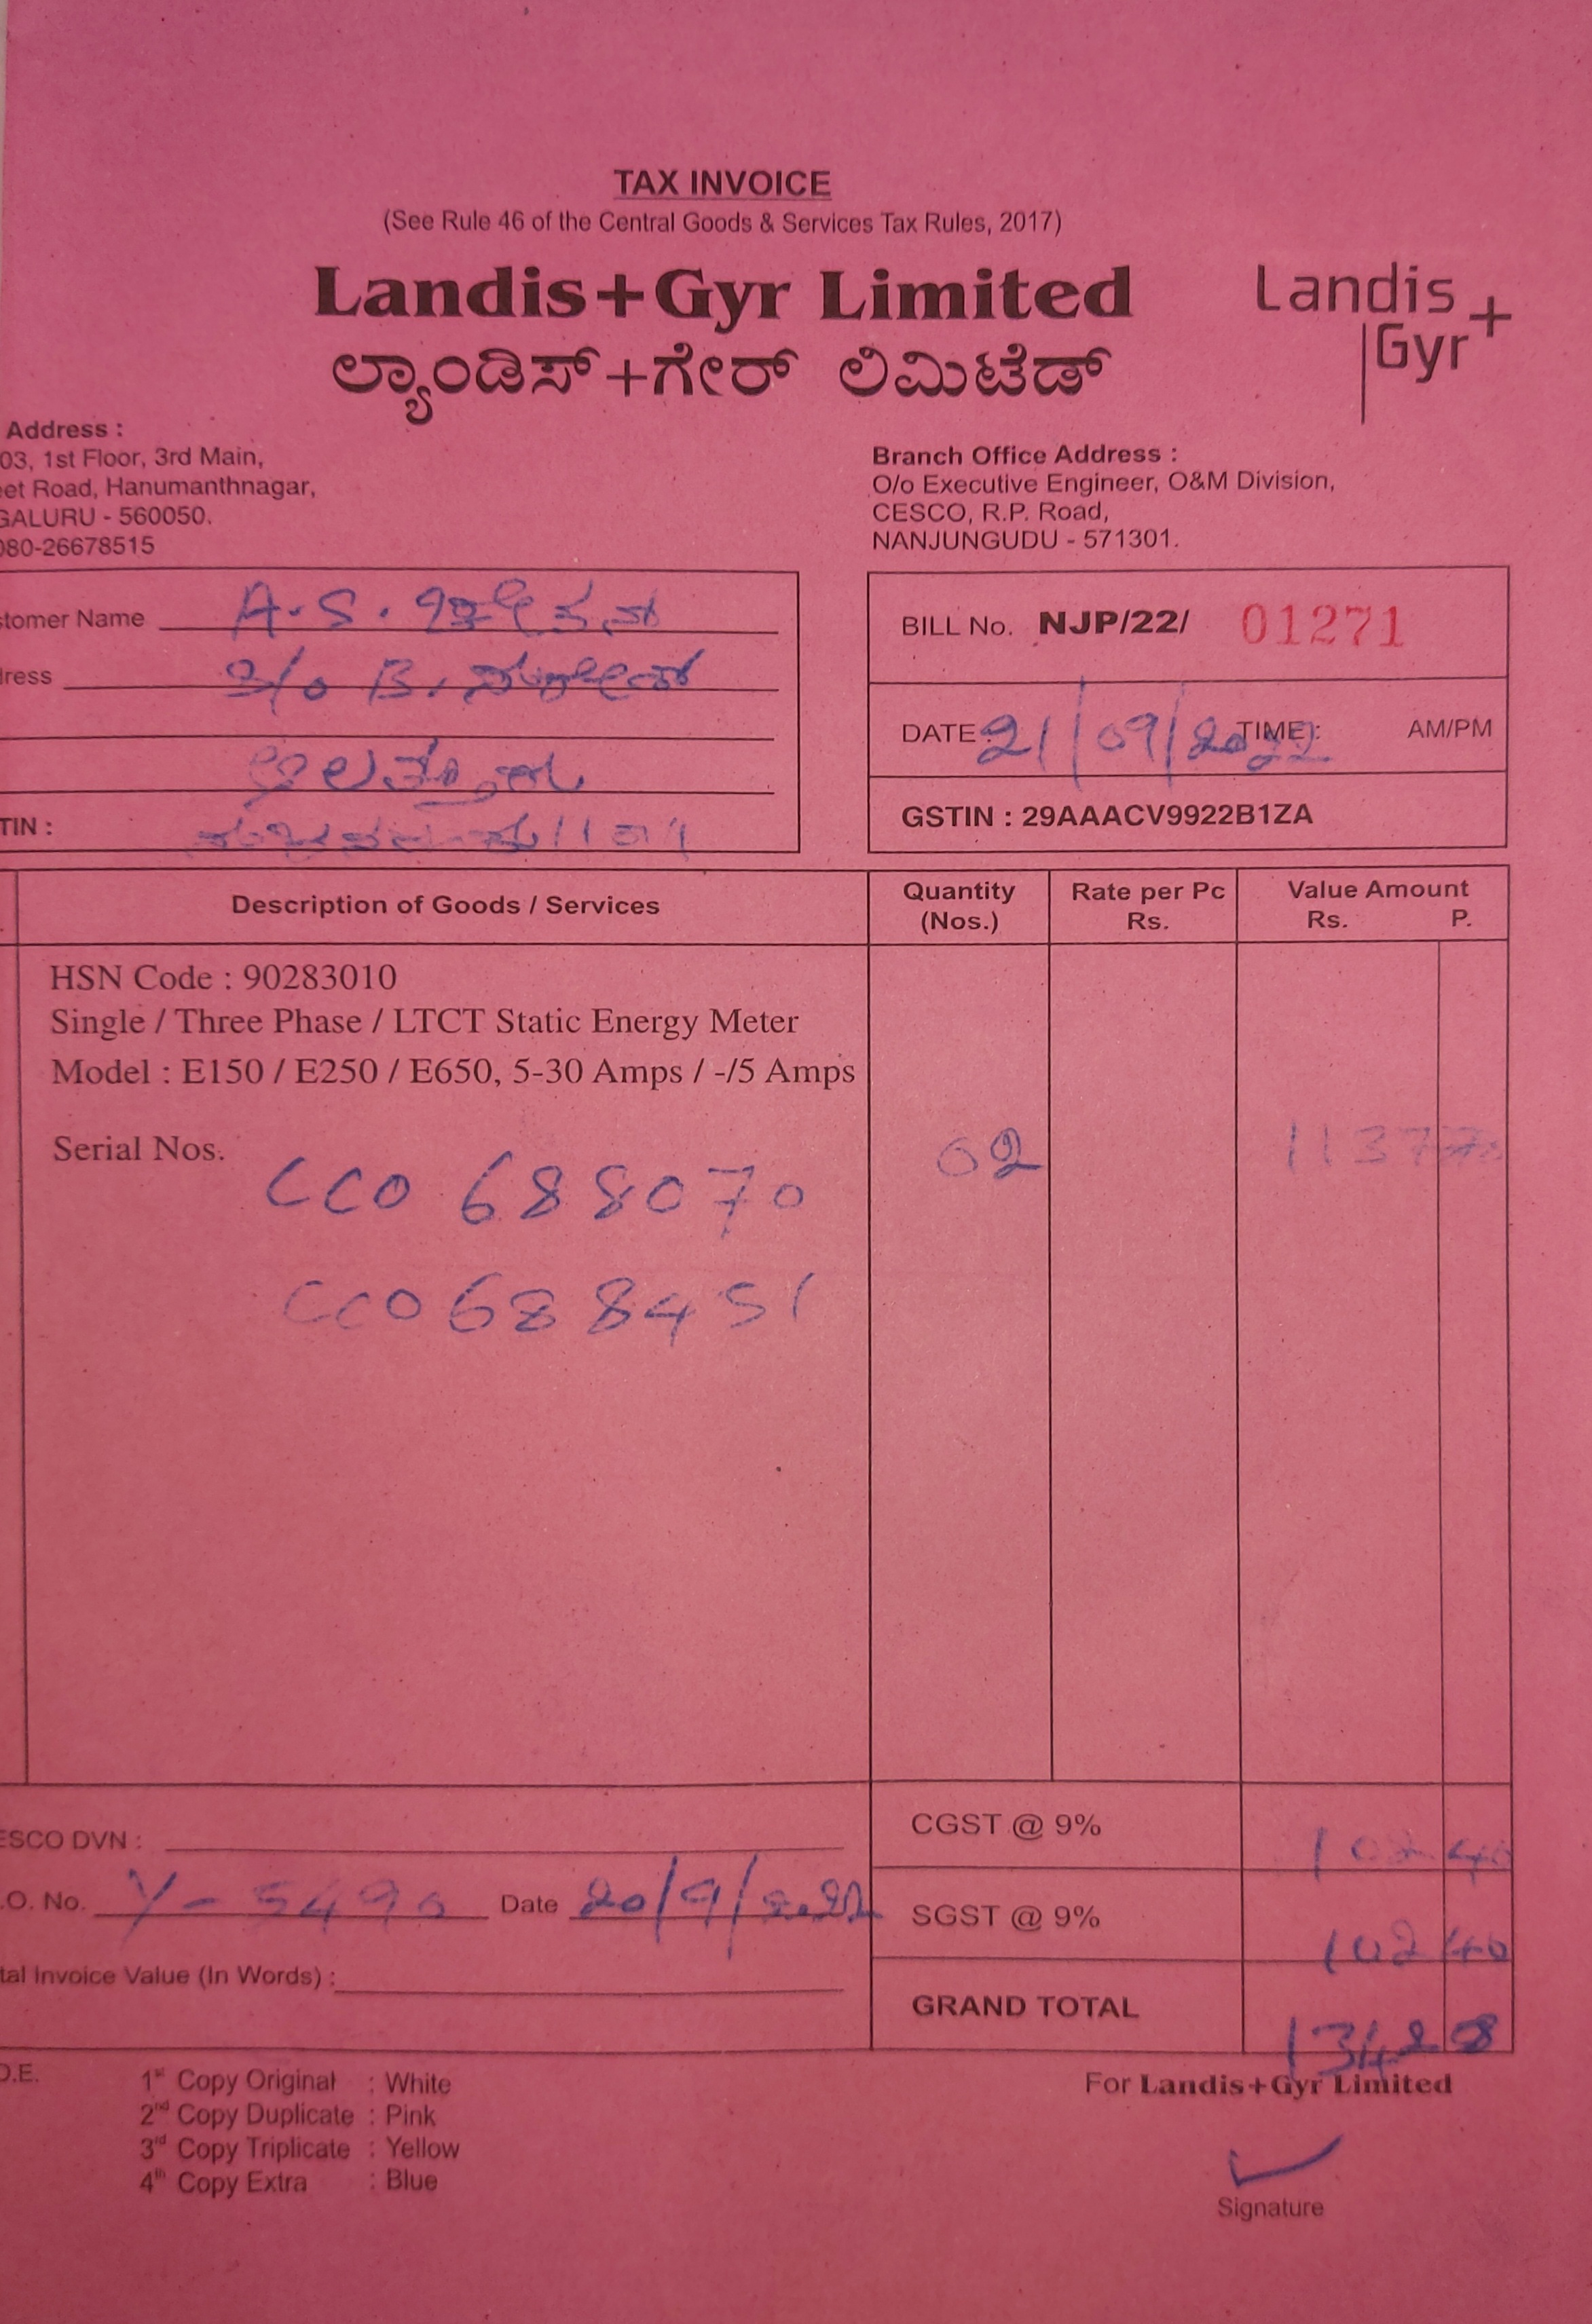 TAX INVOICE
(See Rule 46 of the Central Goods & Services Tax Rules, 2017)
Landis+Gyr Limited
ಲ್ಯಾಂಡಿಸ್+ಗೇರ್ ಲಿಮಿಟೆಡ್
Landis
Gyr+
Address :
03, 1st Floor, 3rd Main,
eet Road, Hanumanthnagar,
GALURU - 560050.
080-26678515
Branch Office Address :
O/o Executive Engineer, O&M Division,
CESCO, R.P. Road,
NANJUNGUDU - 571301.
stomer Name A.S.
dress S/o B.
TIN :
BILL No. NJP/22/ 01271
DATE : 21/09/2022 TIME : AM/PM
GSTIN : 29AAACV9922B1ZA
Description of Goods / Services Quantity (Nos.) Rate per Pc Rs. Value Amount Rs. P.
HSN Code : 90283010
Single / Three Phase / LTCT Static Energy Meter
Model : E150 / E250 / E650, 5-30 Amps / -/5 Amps
Serial Nos. CCO 688070 02 1137
CCO 688451
ESCO DVN :
CGST @ 9% 102 40
.O. No. Y-5490 Date 20/9/2022
SGST @ 9% 102 40
tal Invoice Value (In Words) :
GRAND TOTAL 1342 8
O.E.
1st Copy Original : White
2nd Copy Duplicate : Pink
3rd Copy Triplicate : Yellow
4th Copy Extra : Blue
For Landis+Gyr Limited
Signature